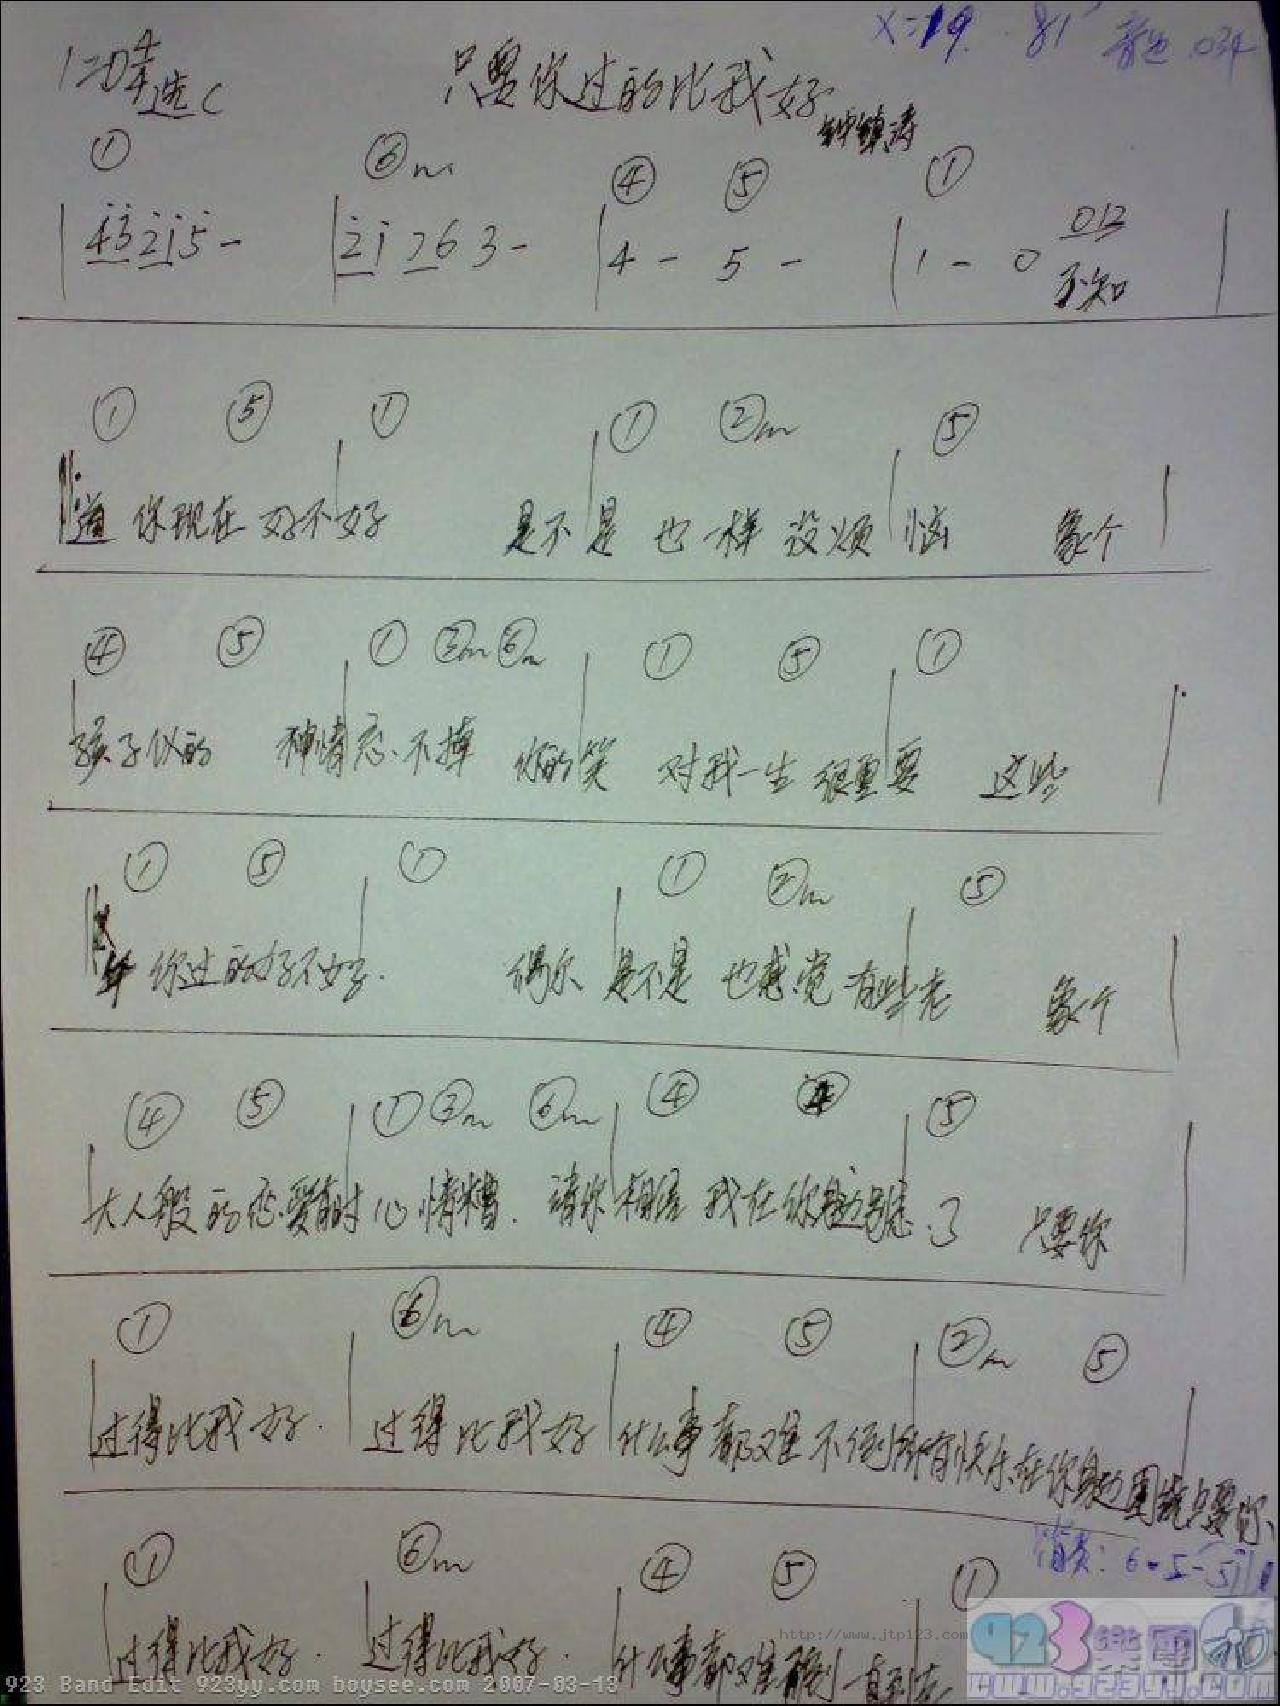 X=19 . 81 音色.034
1=D 4/4 选C
只要你过的比我好
钟镇涛
① ⑥m ④ ⑤ ①
4 3 2 1 5 - | 2 1 7 6 3 - | 4 - 5 - | 1 - 0 012 |
不知
① ⑤ ① ① ②m ⑤
道 你现在 好不好 是不是 也一样 没烦恼 象个
④ ⑤ ① ③m ⑥m ① ⑤ ①
孩子似的 神情忘不掉 你的笑 对我一生 很重要 这些
① ⑤ ① ① ②m ⑤
年 你过的好不好. 偶尔 是不是 也感觉 有些老 象个
④ ⑤ ① ③m ⑥m ④ ④ ⑤
大人般 的恋爱有时心情糟. 请你相信 我在你身边别忘了 只要你
① ⑥m ④ ⑤ ②m ⑤
过得比我好. 过得比我好 什么事都难不倒所有快乐在你身边围绕只要你
: 6 - 5 -
① ⑥m ④ ⑤ ①
过得比我好. 过得比我好. 什么事都难不倒一直到老
http://www.jtp123.com
923 樂團
www.923yy.com
923 Band Edit 923yy.com boysee.com 2007-03-13